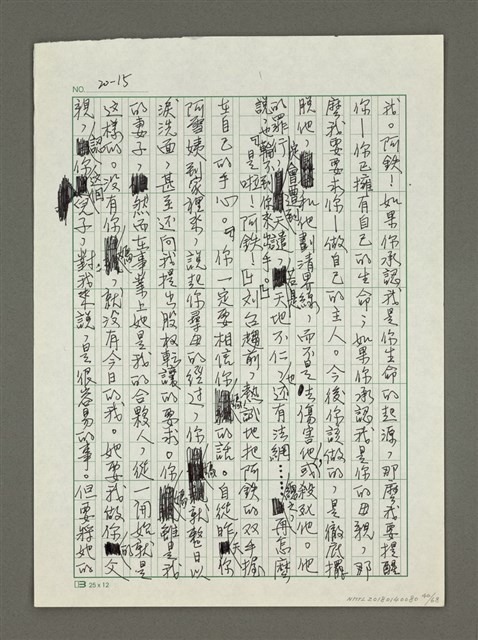 NO. 20-15
我。阿鉄！如果你承認我是你生命的起源，那麼我要提醒
你—你已擁有自己的生命；如果你承認我是你的母親，那
麼我要要求你—做自己的主人。今後你該做的，是徹底擺
脫他，和他劃清界線，而不是去傷害他或殺死他。他
的罪行，快會遭到天遣，若是天地不仁，也還有法網……，再怎麼
說，也輪不到你來出手。」
「是啦！阿鉄。」刘台趨前，熱誠地把阿鉄的双手握
在自己的手心。「你一定要相信你媽的說。自從昨天你
阿雪姨到家裡來，說起你尋母的經过，你媽就整日以
淚洗面，甚至还向我提出股权転讓的要求。你媽雖是我
的妻子，然而在事業上她是我的合夥人，從一開始就是
这樣的。没有你媽，就没有今日的我。她要我做你的父
親，認你这個兒子，對我來說，是很容易的事。但要將她的
25 x 12